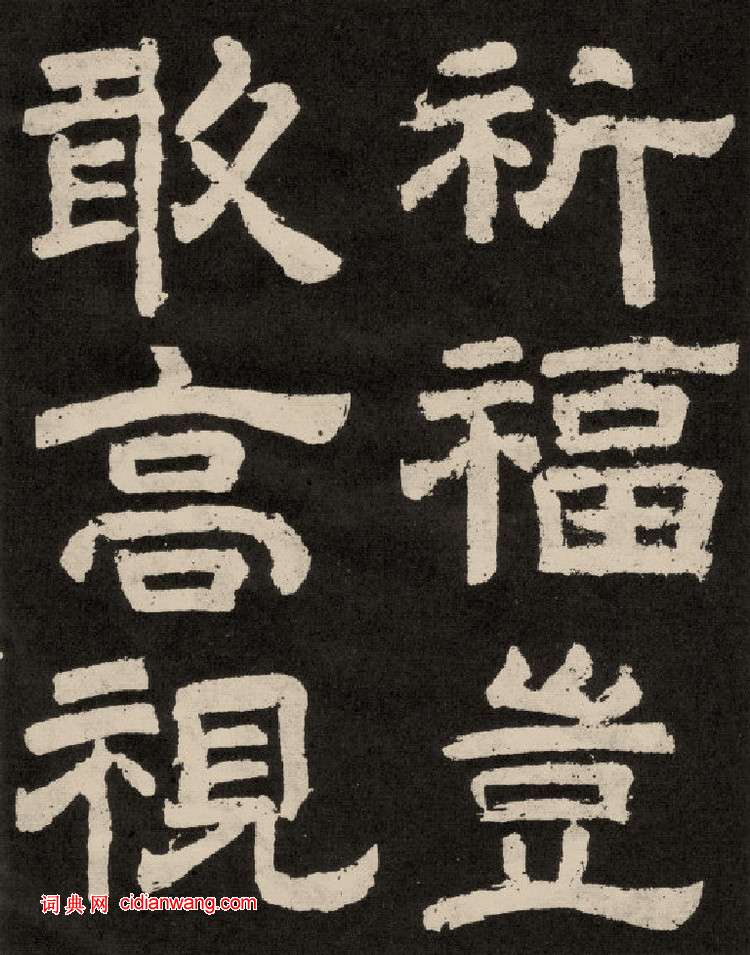 祈福豈
敢高視
词典网 cidianwang.com